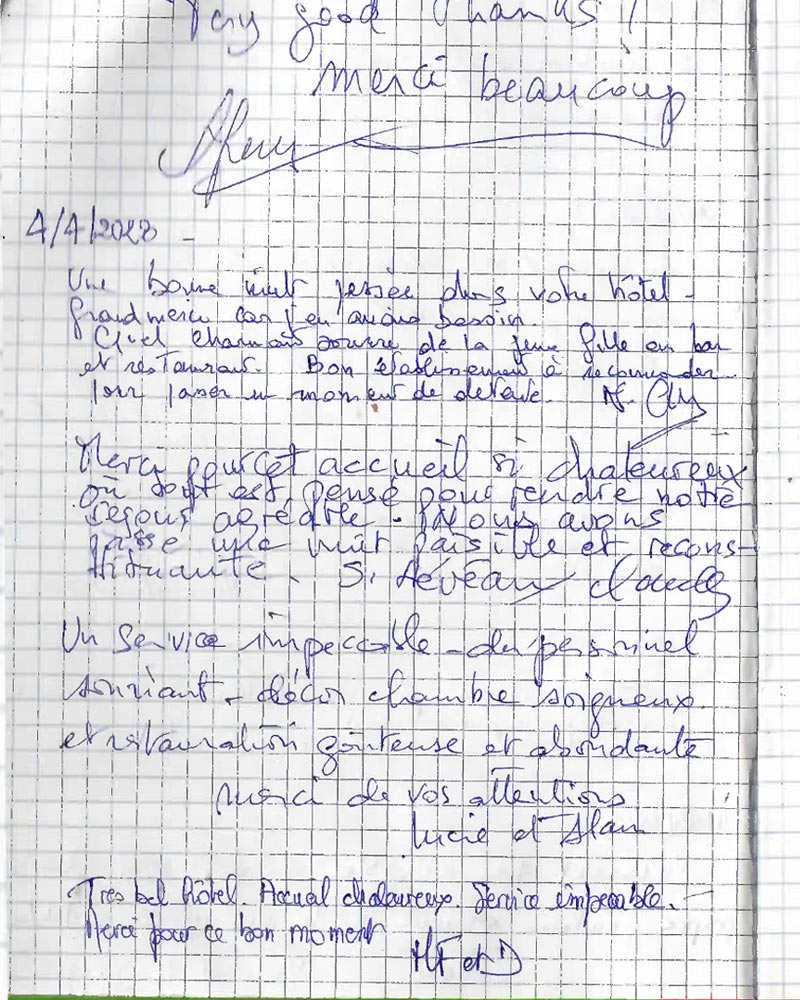 Very good Thanks !
merci beaucoup
4/4/2023 -
Une bonne nuit passée dans votre hôtel -
grand merci car j'en avais besoin.
Quel charmant sourire de la jeune fille au bar
et restaurant. Bon établissement à recommander
pour passer un moment de détente.
Merci pour cet accueil si chaleureux
où tout est pensé pour rendre notre
séjour agréable. Nous avons
passé une nuit paisible et recons-
tituante. S.
Un service impeccable - du personnel
souriant - décor chambre soigneux
et restauration goûteuse et abondante
merci de vos attentions
Lucie et Alan
Très bel hôtel. Accueil chaleureux. Service impeccable.
Merci pour ce bon moment
MF et D